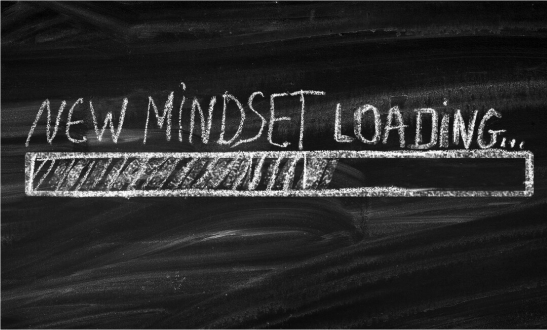 NEW MiNDSET LOADiNG...